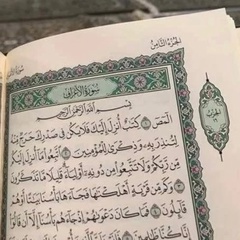 الجزء الثامن
سورة الأعراف
بِسْمِ اللَّهِ الرَّحْمَٰنِ الرَّحِيمِ
الٓمٓصٓ ١ كِتَٰبٌ أُنزِلَ إِلَيْكَ فَلَا يَكُن فِي صَدْرِكَ حَرَجٌ مِّنْهُ
لِتُنذِرَ بِهِۦ وَذِكْرَىٰ لِلْمُؤْمِنِينَ ٢ ٱتَّبِعُوا۟ مَآ أُنزِلَ إِلَيْكُم
مِّن رَّبِّكُمْ وَلَا تَتَّبِعُوا۟ مِن دُونِهِۦٓ أَوْلِيَآءَ ۗ قَلِيلًا مَّا تَذَكَّرُونَ
٣ وَكَم مِّن قَرْيَةٍ أَهْلَكْنَٰهَا فَجَآءَهَا بَأْسُنَا بَيَٰتًا أَوْ هُمْ
قَآئِلُونَ ٤ فَمَا كَانَ دَعْوَىٰهُمْ إِذْ جَآءَهُم بَأْسُنَآ إِلَّآ أَن قَالُوٓا۟
الحزب